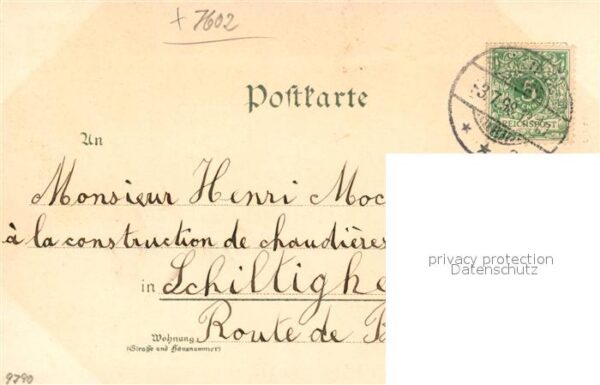 + 7602
Postkarte
REICHSPOST
An
Monsieur Henri Moc
à la construction de chaudières
in Schiltighe
Route de B
Wohnung
(Straße und Hausnummer)
privacy protection
Datenschutz
9790